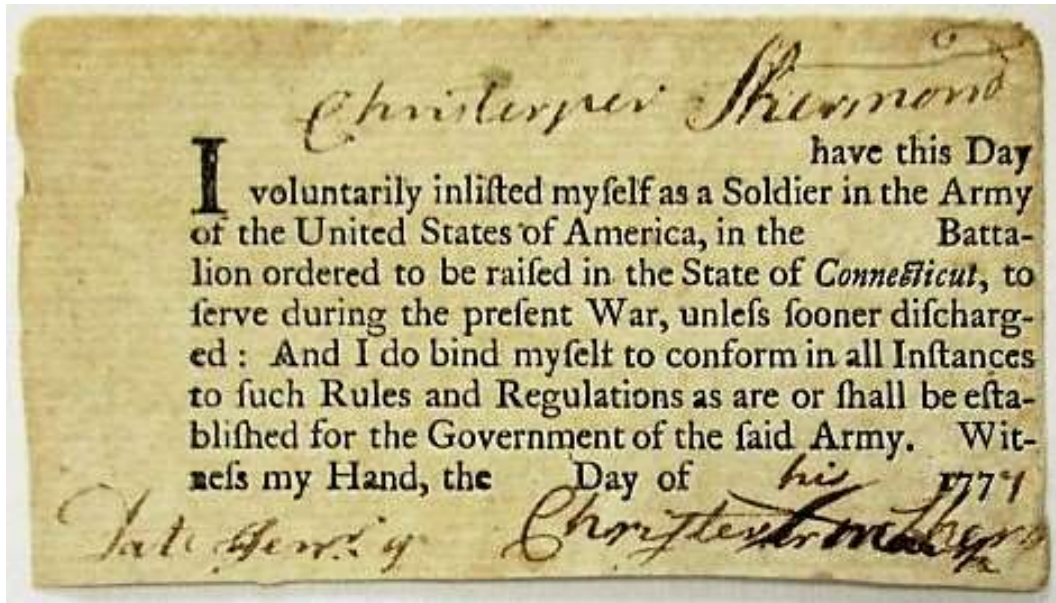 Christerper Shermond
I have this Day
voluntarily inliſted myſelf as a Soldier in the Army
of the United States of America, in the Batta-
lion ordered to be raiſed in the State of Connecticut, to
ſerve during the preſent War, unleſs ſooner diſcharg-
ed : And I do bind myſelf to conform in all Inſtances
to ſuch Rules and Regulations as are or ſhall be eſta-
bliſhed for the Government of the ſaid Army. Wit-
neſs my Hand, the Day of his 1777
Date